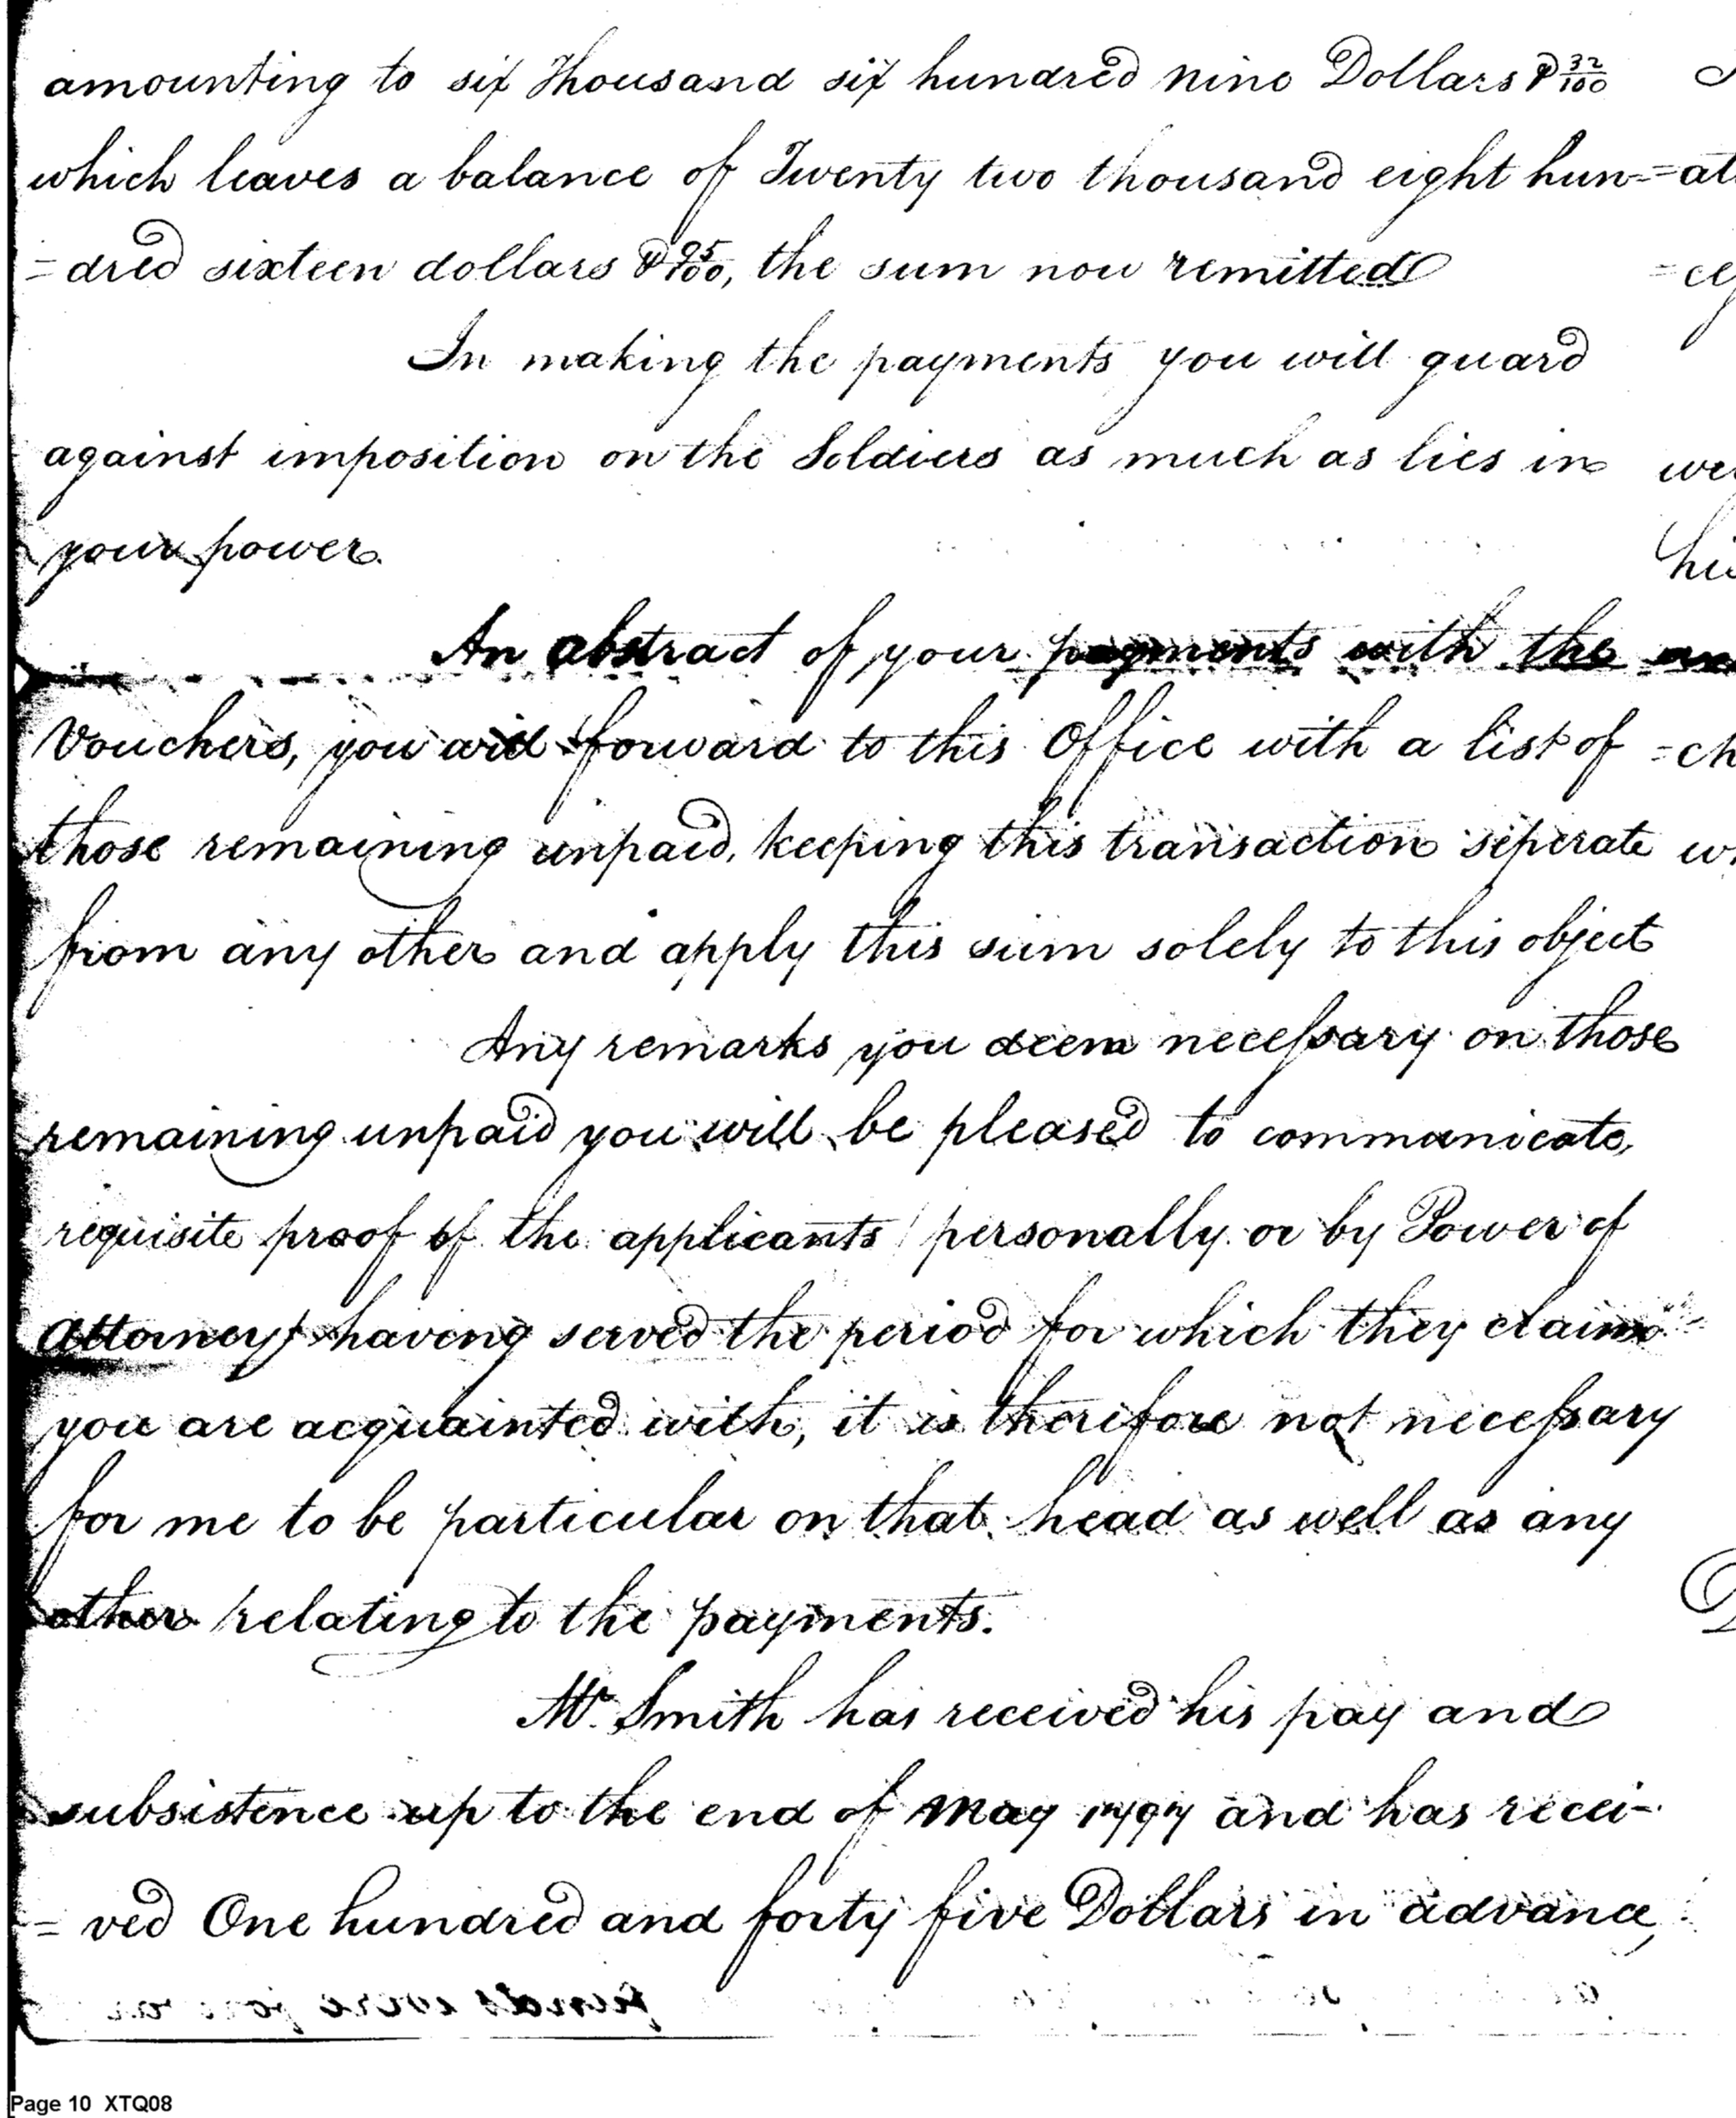 amounting to six Thousand six hundred nine Dollars & 32/100
which leaves a balance of Twenty two thousand eight hun=
=dred sixteen dollars & 95/100, the sum now remitted
In making the payments you will guard
against imposition on the Soldiers as much as lies in
your power.
An abstract of your payments with the
Vouchers, you will forward to this Office with a list of
those remaining unpaid, keeping this transaction seperate
from any other and apply this sum solely to this object
Any remarks you deem necessary on those
remaining unpaid you will be pleased to communicate,
requisite proof of the applicants / personally or by Power of
Attorney / having served the period for which they claim
you are acquainted with, it is therefore not necessary
for me to be particular on that head as well as any
other relating to the payments.
Mr. Smith has received his pay and
subsistence up to the end of May 1797 and has recei=
=ved One hundred and forty five Dollars in advance,
Page 10 XTQ08